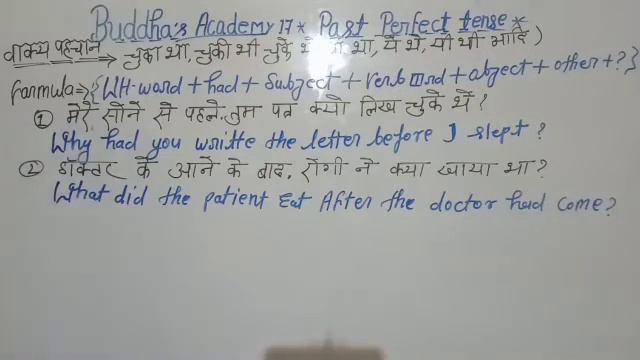 Buddha's Academy 17* Past Perfect tense*
वाक्य पहचान → चुका था, चुकी थी चुके थे था, ये थे, यी थी आदि)
Farmula⇒ {WH-ward + had + Subject + verb IIIrd + abject + other + ?}
① मेरे सोने से पहले तुम पत्र क्यों लिख चुके थे?
Why had you writte the letter before I slept?
② डॉक्टर के आने के बाद, रोगी ने क्या खाया था?
What did the patient Eat After the doctor had come?